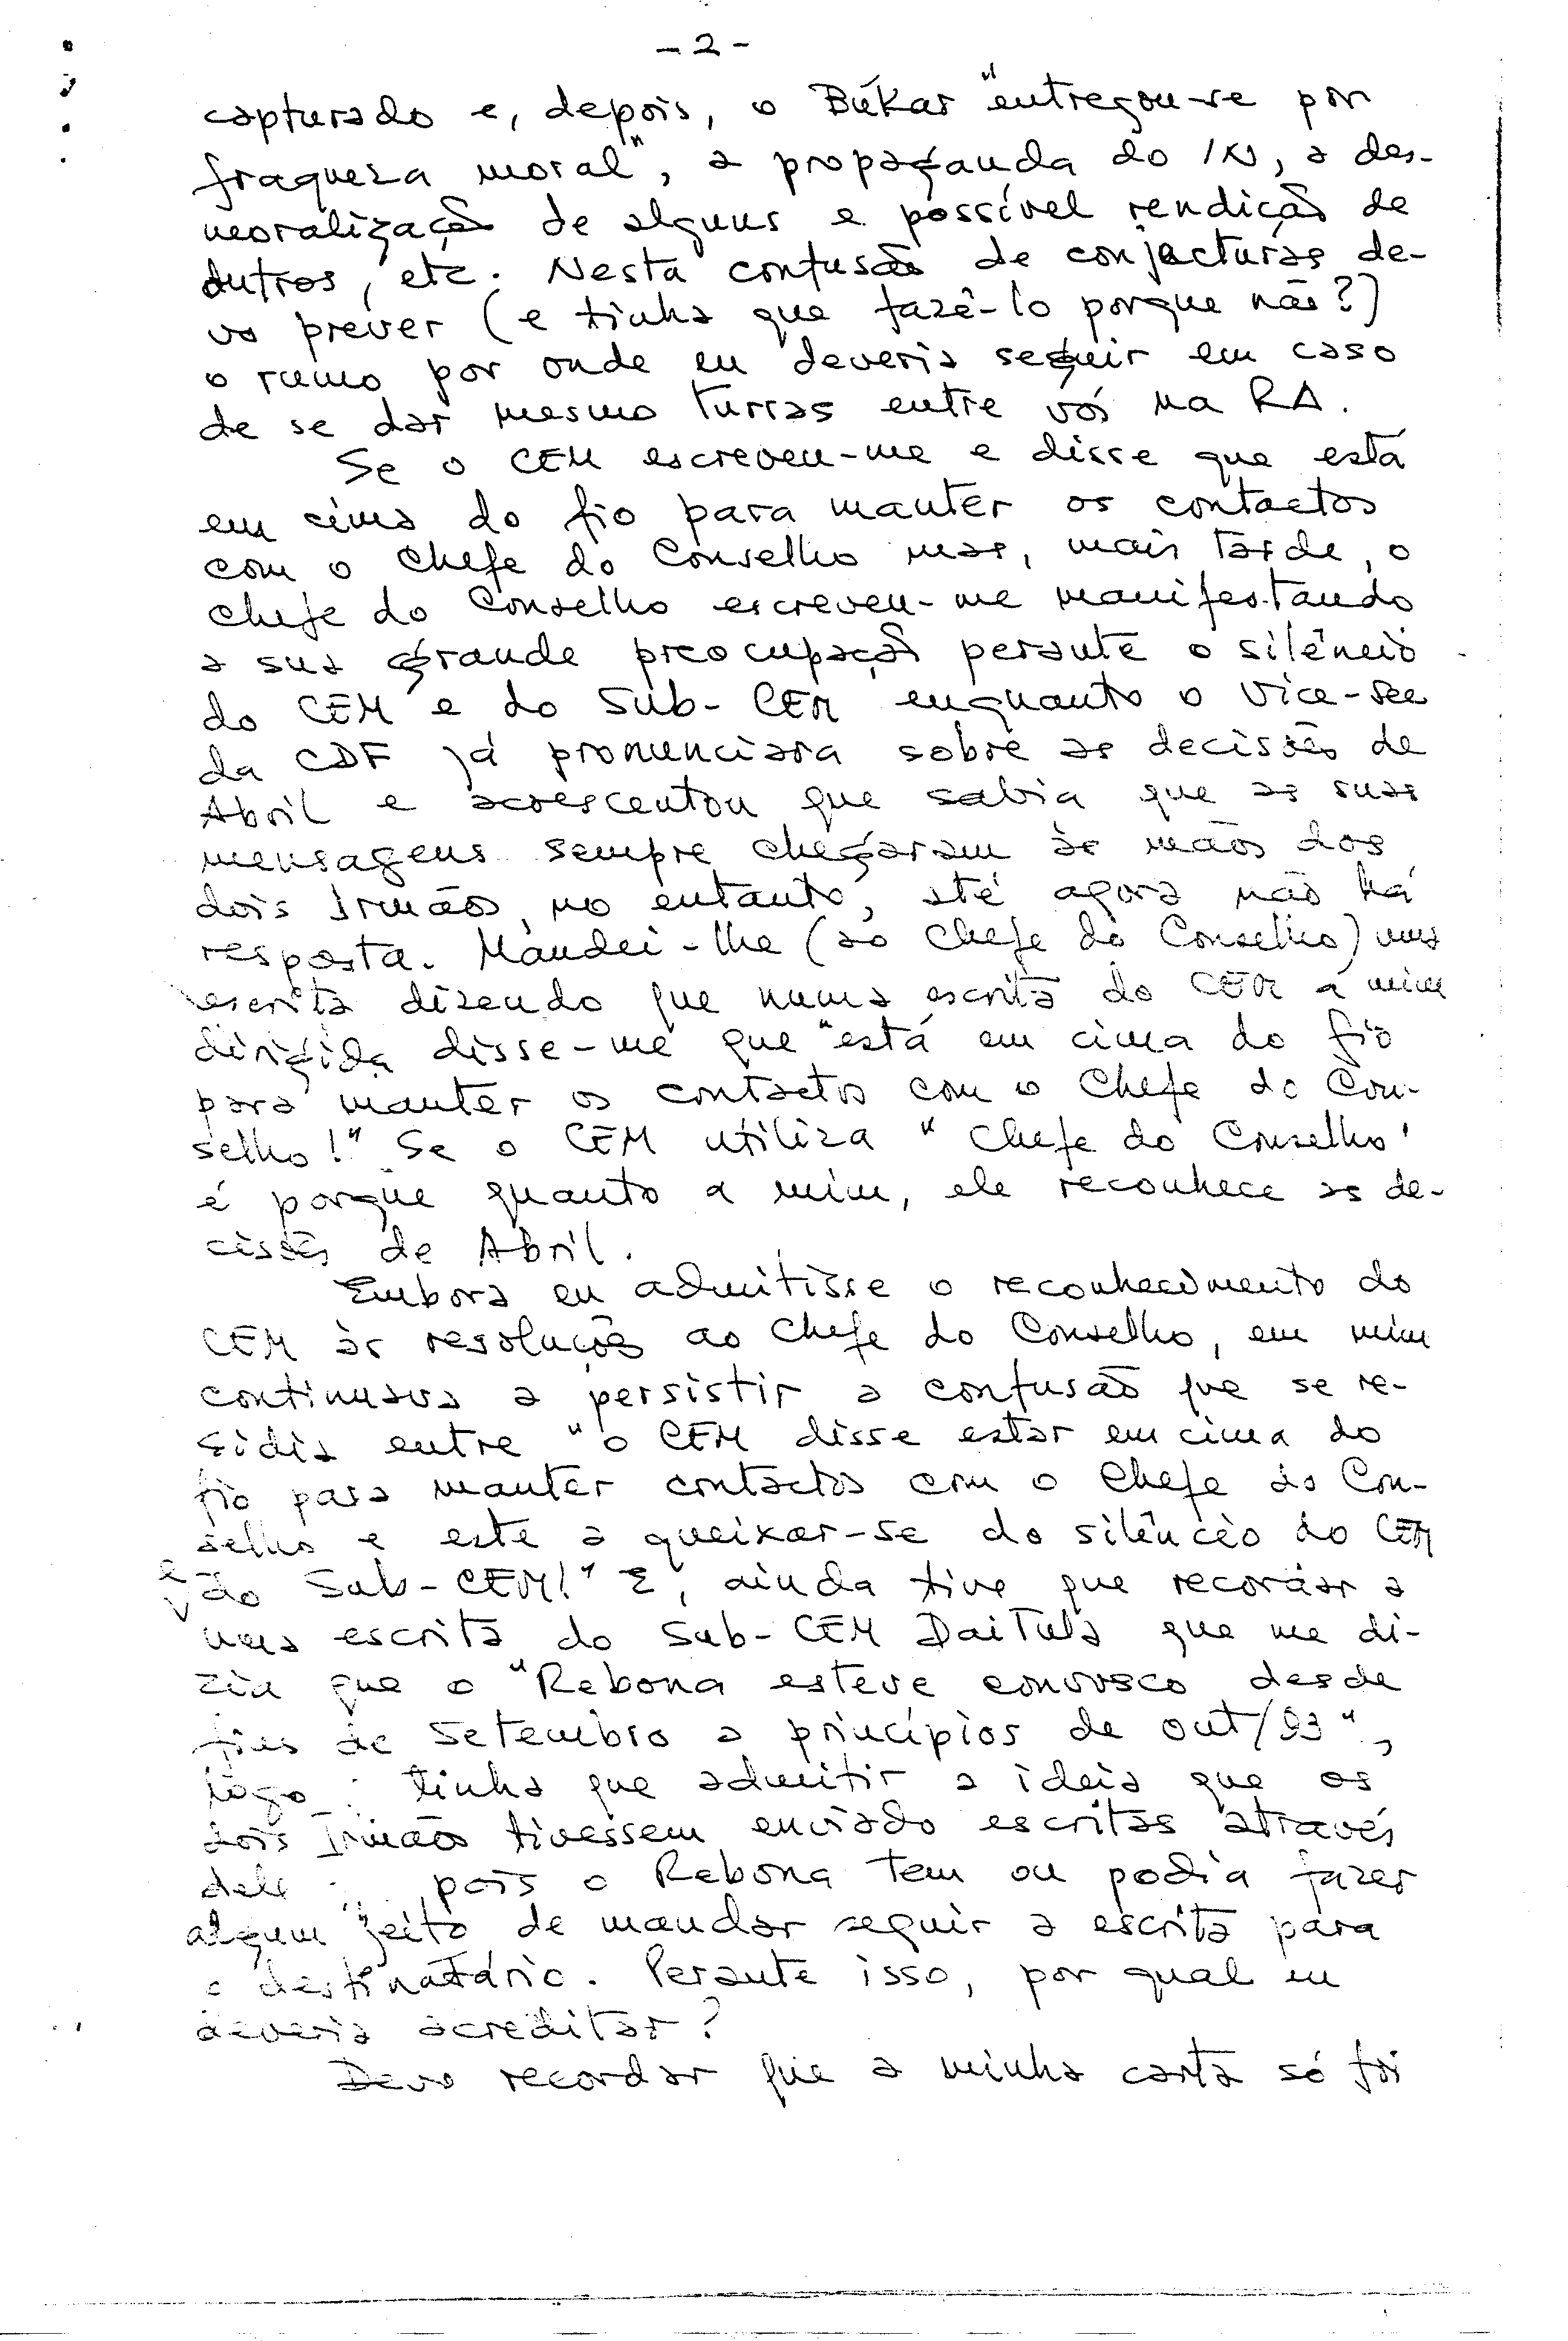 - 2 -
capturado e, depois, o Búkar "entregou-se por
fraqueza moral", a propaganda do IN, a des-
moralização de alguns e possível rendição de
outros, etc. Nesta confusão de conjecturas de-
vo prever (e tinha que fazê-lo porque não?)
o rumo por onde eu deveria seguir em caso
de se dar mesmo turras entre vós na RA.
Se o CEM escreveu-me e disse que está
em cima do fio para manter os contactos
com o Chefe do Conselho mas, mais tarde, o
Chefe do Conselho escreveu-me manifestando
a sua grande preocupação perante o silêncio
do CEM e do Sub-CEM enquanto o Vice-Sec
da CDF já pronunciara sobre as decisões de
Abril e acrescentou que sabia que as suas
mensagens sempre chegaram às mãos dos
dois Irmãos, no entanto, até agora não há
resposta. Mandei-lhe (ao Chefe do Conselho) uma
escrita dizendo que numa escrita do CEM a mim
dirigida disse-me que "está em cima do fio
para manter os contactos com o Chefe do Con-
selho!" Se o CEM utiliza "Chefe do Conselho"
é porque quanto a mim, ele reconhece as de-
cisões de Abril.
Embora eu admitisse o reconhecimento do
CEM às resoluções ao Chefe do Conselho, em mim
continuava a persistir a confusão que se re-
sidia entre "o CEM disse estar em cima do
fio para manter contactos com o Chefe do Con-
selho e este a queixar-se do silêncio do CEM
e do Sub-CEM!" E, ainda tive que recordar a
uma escrita do Sub-CEM DaiTula que me di-
zia que o "Rebona esteve convosco desde
fins de Setembro a princípios de out/93",
logo: tinha que admitir a ideia que os
dois Irmãos tivessem enviado escritas através
dele pois o Rebona tem ou podia fazer
algum jeito de mandar seguir a escrita para
o destinatário. Perante isso, por qual eu
deveria acreditar?
Devo recordar que a minha carta só foi